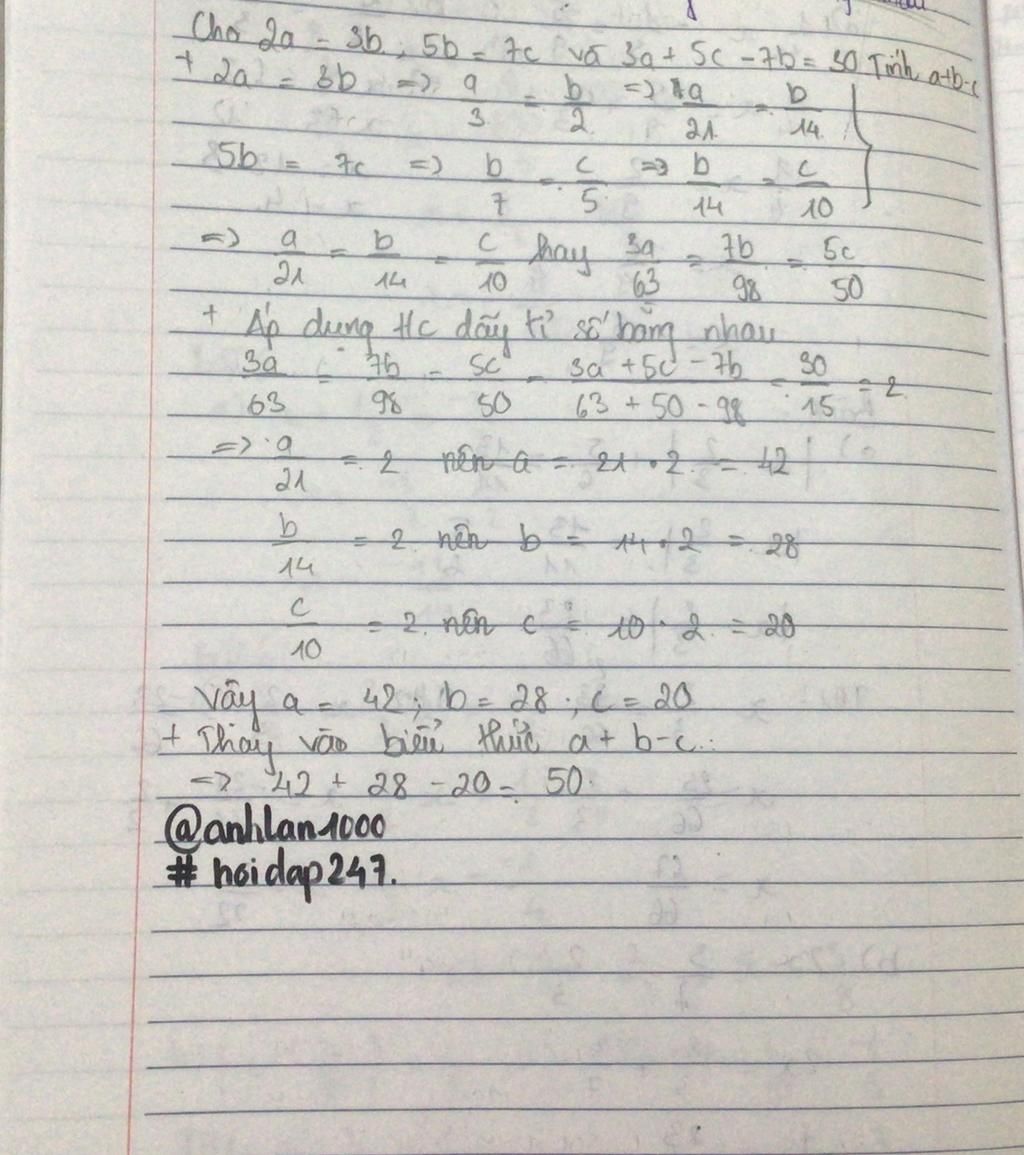 Cho 2a = 3b; 5b = 7c và 3a + 5c - 7b = 30 Tính a+b-c
+ 2a = 3b => a/3 = b/2 => a/21 = b/14
5b = 7c => b/7 = c/5 => b/14 = c/10
=> a/21 = b/14 = c/10 hay 3a/63 = 7b/98 = 5c/50
+ Áp dụng t/c dãy tỉ số bằng nhau
3a/63 = 7b/98 = 5c/50 = (3a + 5c - 7b)/(63 + 50 - 98) = 30/15 = 2
=> a/21 = 2 nên a = 21 . 2 = 42
b/14 = 2 nên b = 14 . 2 = 28
c/10 = 2 nên c = 10 . 2 = 20
Vậy a = 42; b = 28; c = 20
+ Thay vào biểu thức a + b - c:
=> 42 + 28 - 20 = 50
@anhlan1000
# hoidap247.